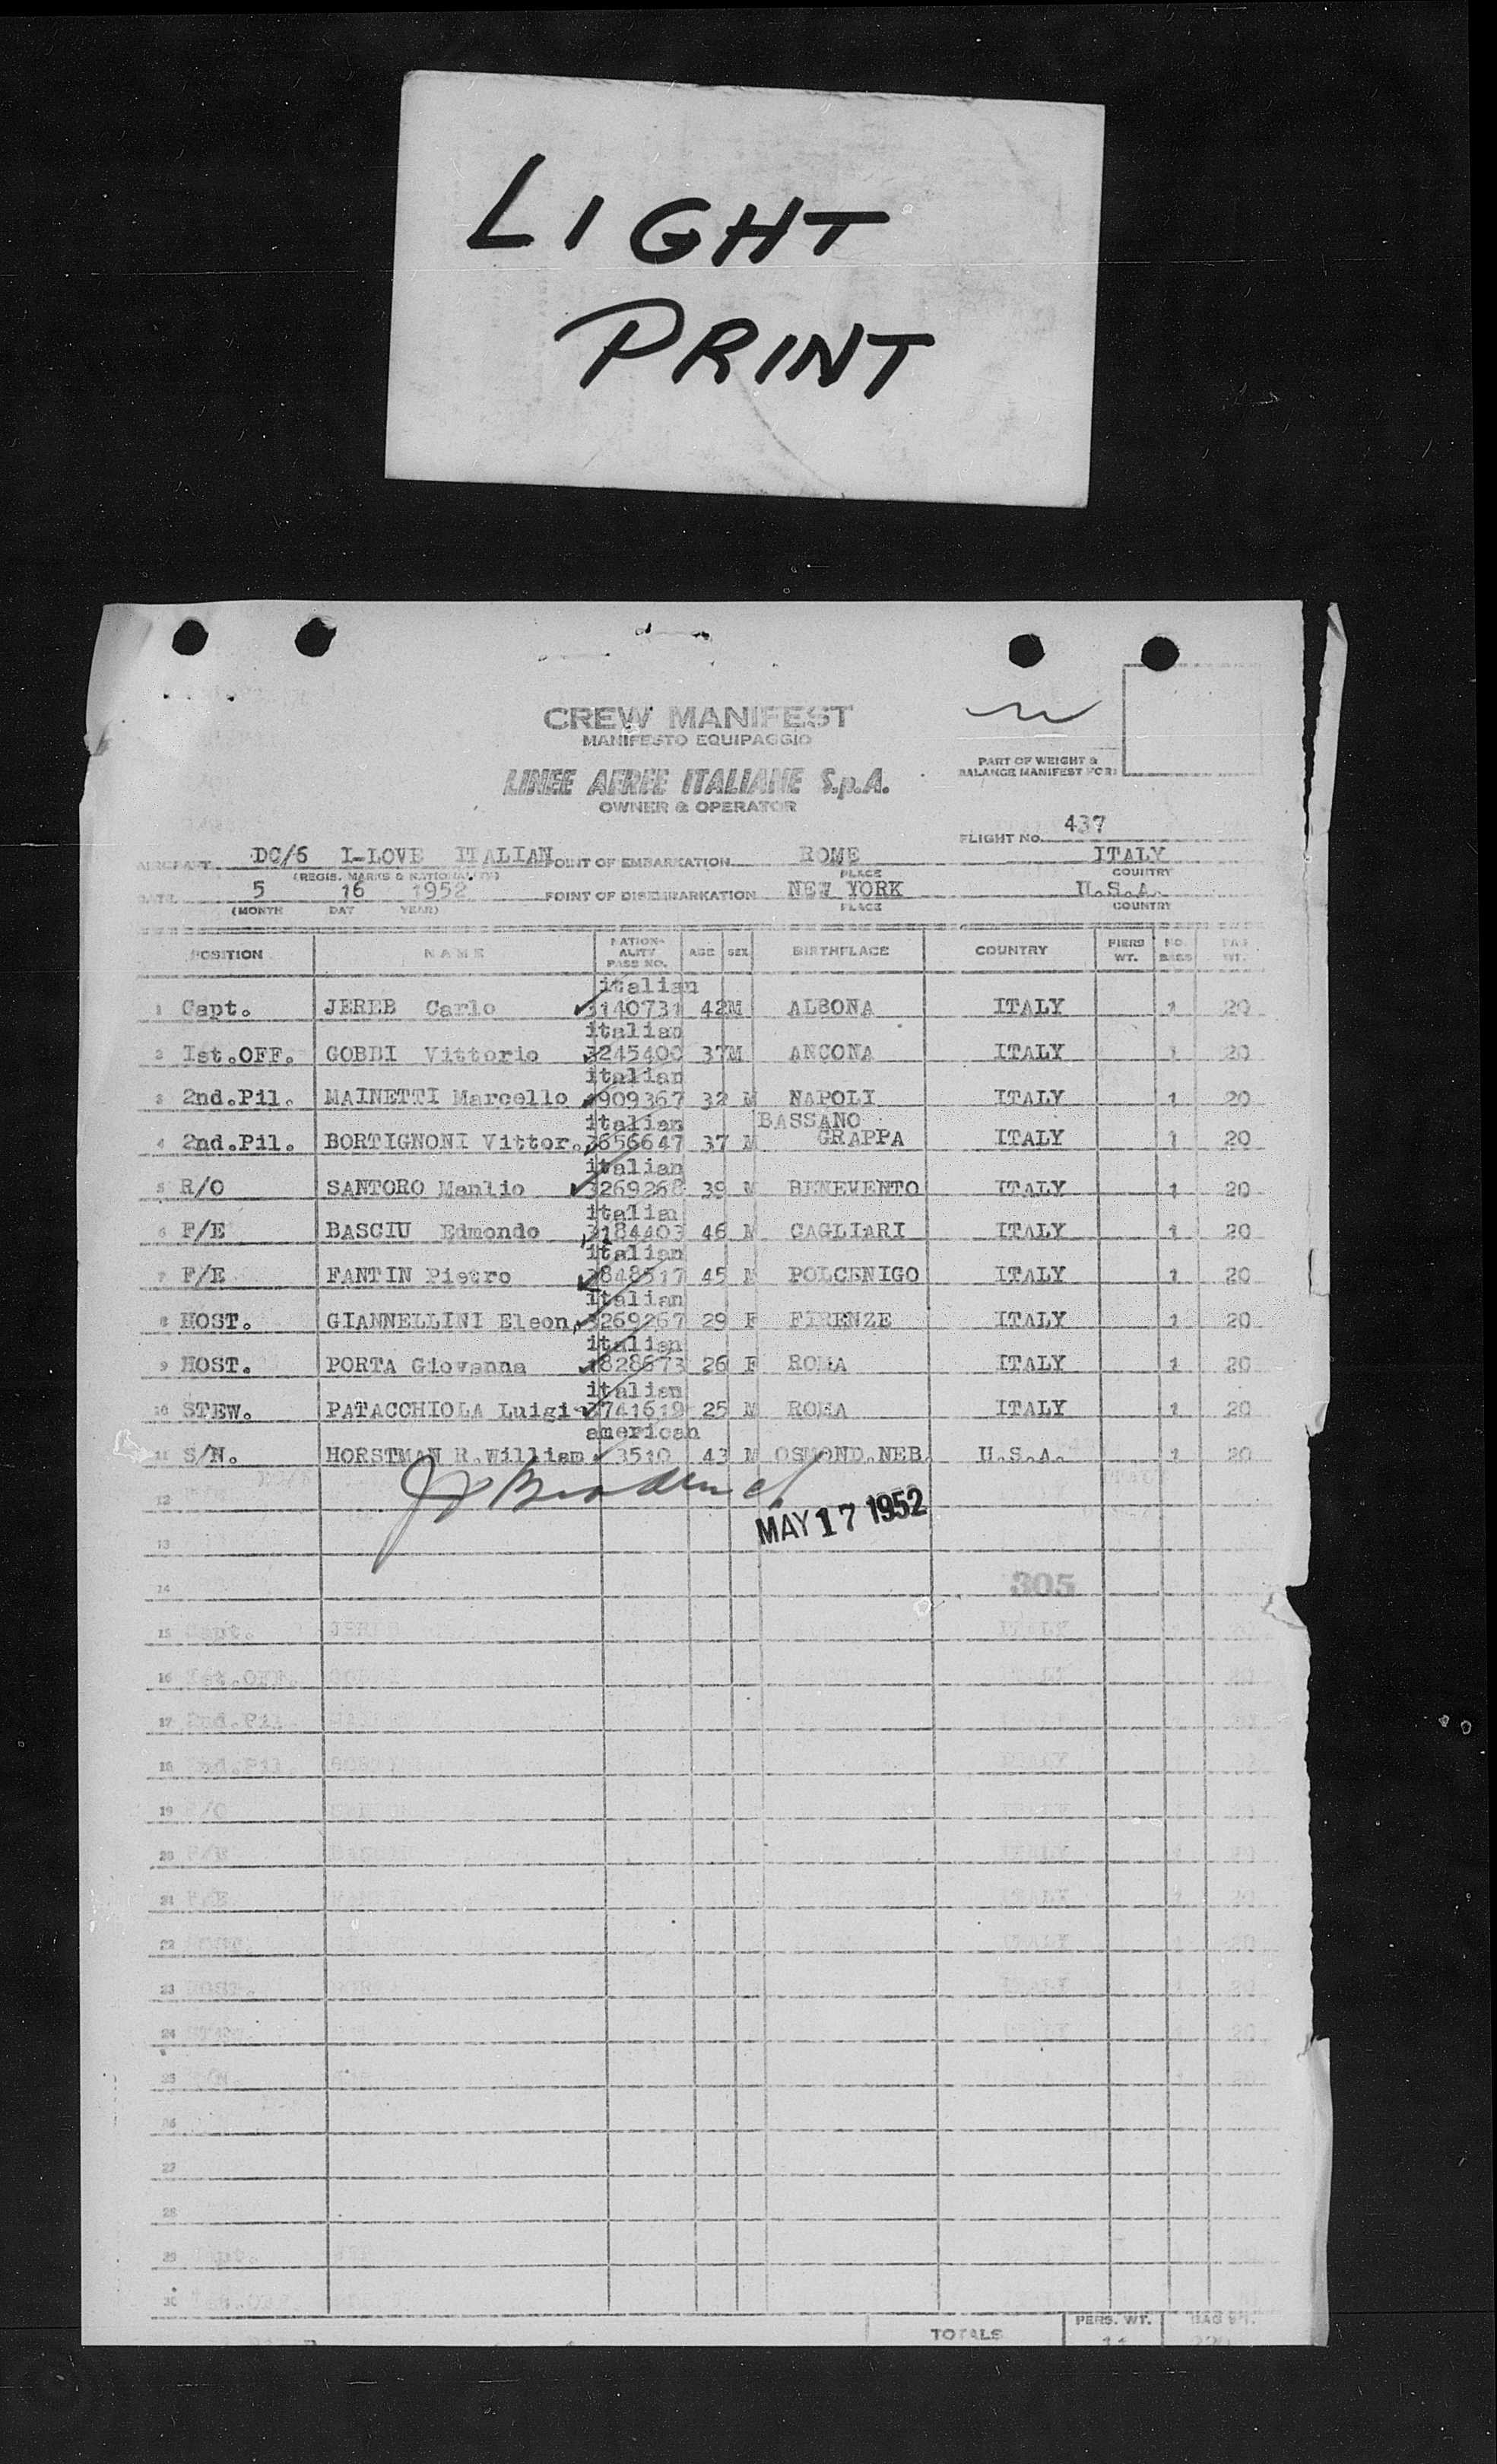 LIGHT
PRINT
CREW MANIFEST
MANIFESTO EQUIPAGGIO
LINEE AEREE ITALIANE S.p.A.
OWNER & OPERATOR
PART OF WEIGHT &
BALANCE MANIFEST FOR:
FLIGHT NO. 437
AIRCRAFT DC/6 I-LOVE ITALIAN POINT OF EMBARKATION ROME ITALY
(REGIS. MARKS & NATIONALITY) PLACE COUNTRY
DATE 5 16 1952 POINT OF DISEMBARKATION NEW YORK U.S.A.
(MONTH DAY YEAR) PLACE COUNTRY
POSITION NAME NATION-ALITY PASS NO. AGE SEX BIRTHPLACE COUNTRY PIERS WT. NO. BAGS BAG WT.
italian
1 Capt. JEREB Carlo 3140731 42 M ALBONA ITALY 1 20
italian
2 Ist.OFF. GOBBI Vittorio 3245400 37 M ANCONA ITALY 1 20
italian
3 2nd.Pil. MAINETTI Marcello 909367 32 M NAPOLI ITALY 1 20
italian BASSANO
4 2nd.Pil. BORTIGNONI Vittor. 3656647 37 M GRAPPA ITALY 1 20
italian
5 R/O SANTORO Manlio 3269268 39 M BENEVENTO ITALY 1 20
italian
6 F/E BASCIU Edmondo 3184403 46 M CAGLIARI ITALY 1 20
italian
7 F/E FANTIN Pietro 848517 45 M POLCENIGO ITALY 1 20
italian
8 HOST. GIANNELLINI Eleon. 3269267 29 F FIRENZE ITALY 1 20
italian
9 HOST. PORTA Giovanna 828673 26 F ROMA ITALY 1 20
italian
10 STEW. PATACCHIOLA Luigi 741619 25 M ROMA ITALY 1 20
american
11 S/N. HORSTMAN R.William 3510 43 M OSMOND.NEB. U.S.A. 1 20
12
MAY 17 1952
13
14 305
15 Capt. JEREB ITALY
16 Ist.OFF. GOBBI ITALY 20
17 2nd.Pil.
18 2nd.Pil ITALY
19 R/O
20 F/E ITALY
21 F/E ITALY 20
22 HOST. ITALY 20
23 HOST. ITALY 20
24 STEW. 20
25 S/N.
26
27
28
29 Capt.
30 Ist.OFF.
TOTALS PERS. WT. BAG WT.
11 220